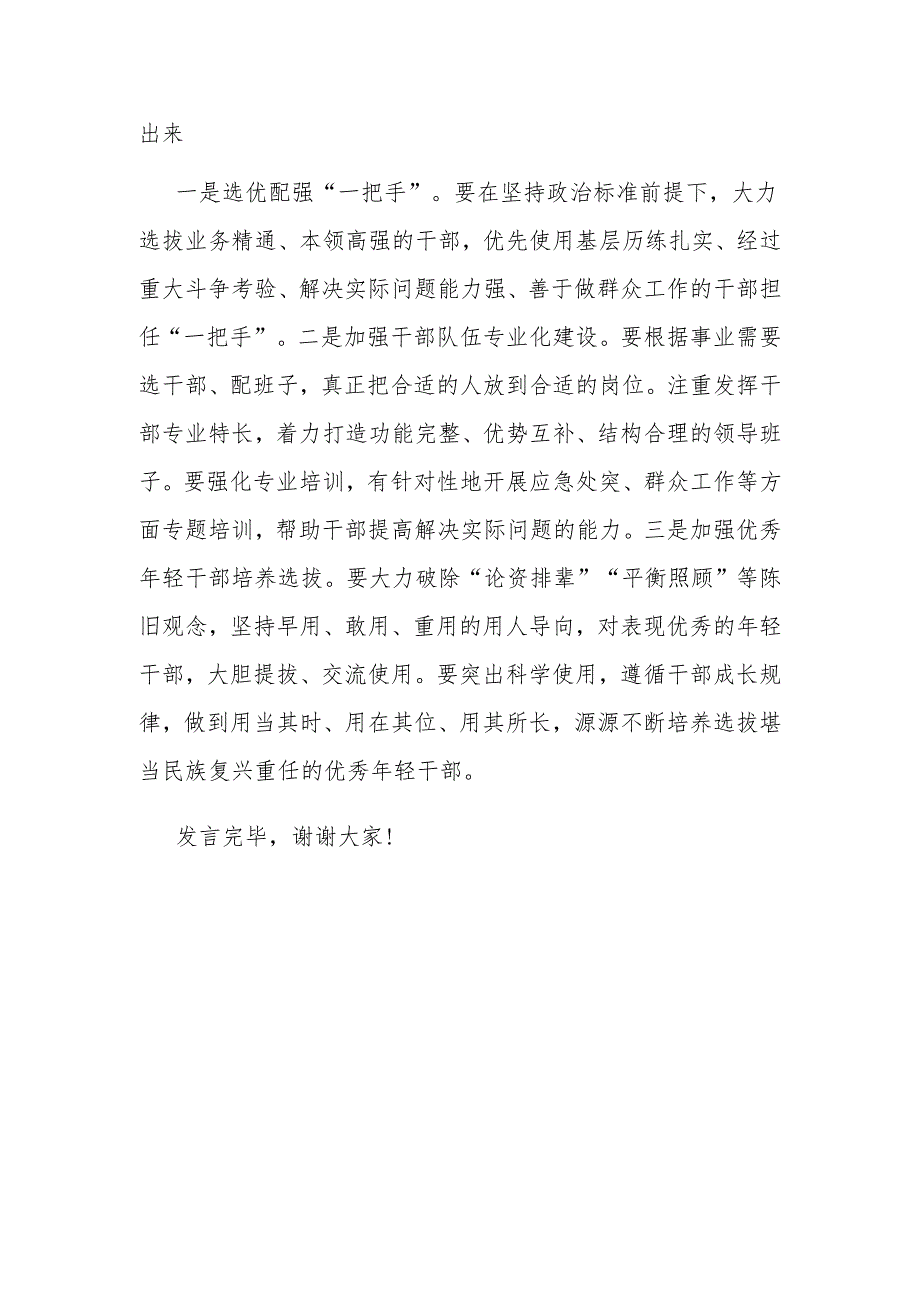 出来
一是选优配强“一把手”。要在坚持政治标准前提下，大力
选拔业务精通、本领高强的干部，优先使用基层历练扎实、经过
重大斗争考验、解决实际问题能力强、善于做群众工作的干部担
任“一把手”。二是加强干部队伍专业化建设。要根据事业需要
选干部、配班子，真正把合适的人放到合适的岗位。注重发挥干
部专业特长，着力打造功能完整、优势互补、结构合理的领导班
子。要强化专业培训，有针对性地开展应急处突、群众工作等方
面专题培训，帮助干部提高解决实际问题的能力。三是加强优秀
年轻干部培养选拔。要大力破除“论资排辈”“平衡照顾”等陈
旧观念，坚持早用、敢用、重用的用人导向，对表现优秀的年轻
干部，大胆提拔、交流使用。要突出科学使用，遵循干部成长规
律，做到用当其时、用在其位、用其所长，源源不断培养选拔堪
当民族复兴重任的优秀年轻干部。
发言完毕，谢谢大家!